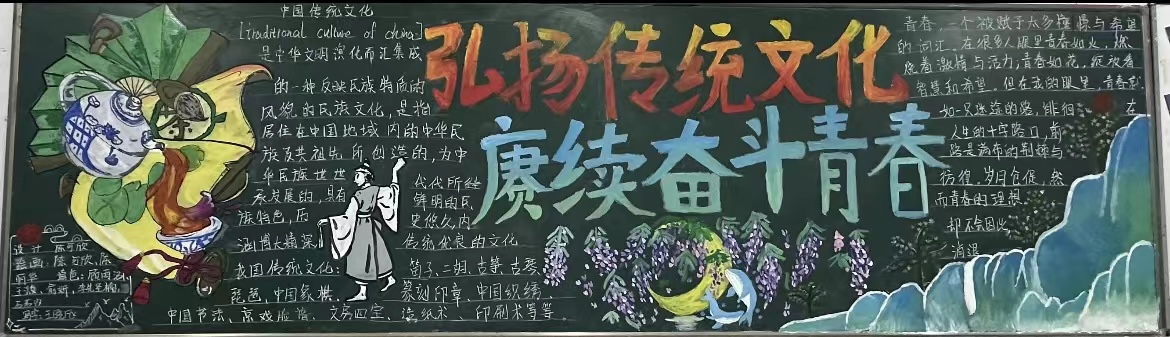 中国传统文化
[traditional culture of china]
是中华文明演化而汇集成
的一种反映民族特质和
风貌的民族文化,是指
居住在中国地域内的中华民
族及其祖先所创造的,为中
华民族世世代代所继
承发展的,具有鲜明的民
族特色,历史悠久,内
涵博大精深传统优良的文化
我国传统文化:笛子、二胡、古筝、古琴、
琵琶、中国象棋、篆刻印章、中国织绣、
中国书法、京戏脸谱、文房四宝、造纸术、印刷术等等。
弘扬传统文化
赓续奋斗青春
青春,一个被赋予太多憧憬与希望
的词汇。在很多人眼里青春如火,燃
烧着激情与活力;青春如花,绽放着
智慧和希望。但在我的眼里,青春就
如一只迷途的羔,徘徊在
人生的十字路口,前
路是满布的荆棘与
彷徨。岁月仓促,然
而青春的理想
却不会因此
消退
设计